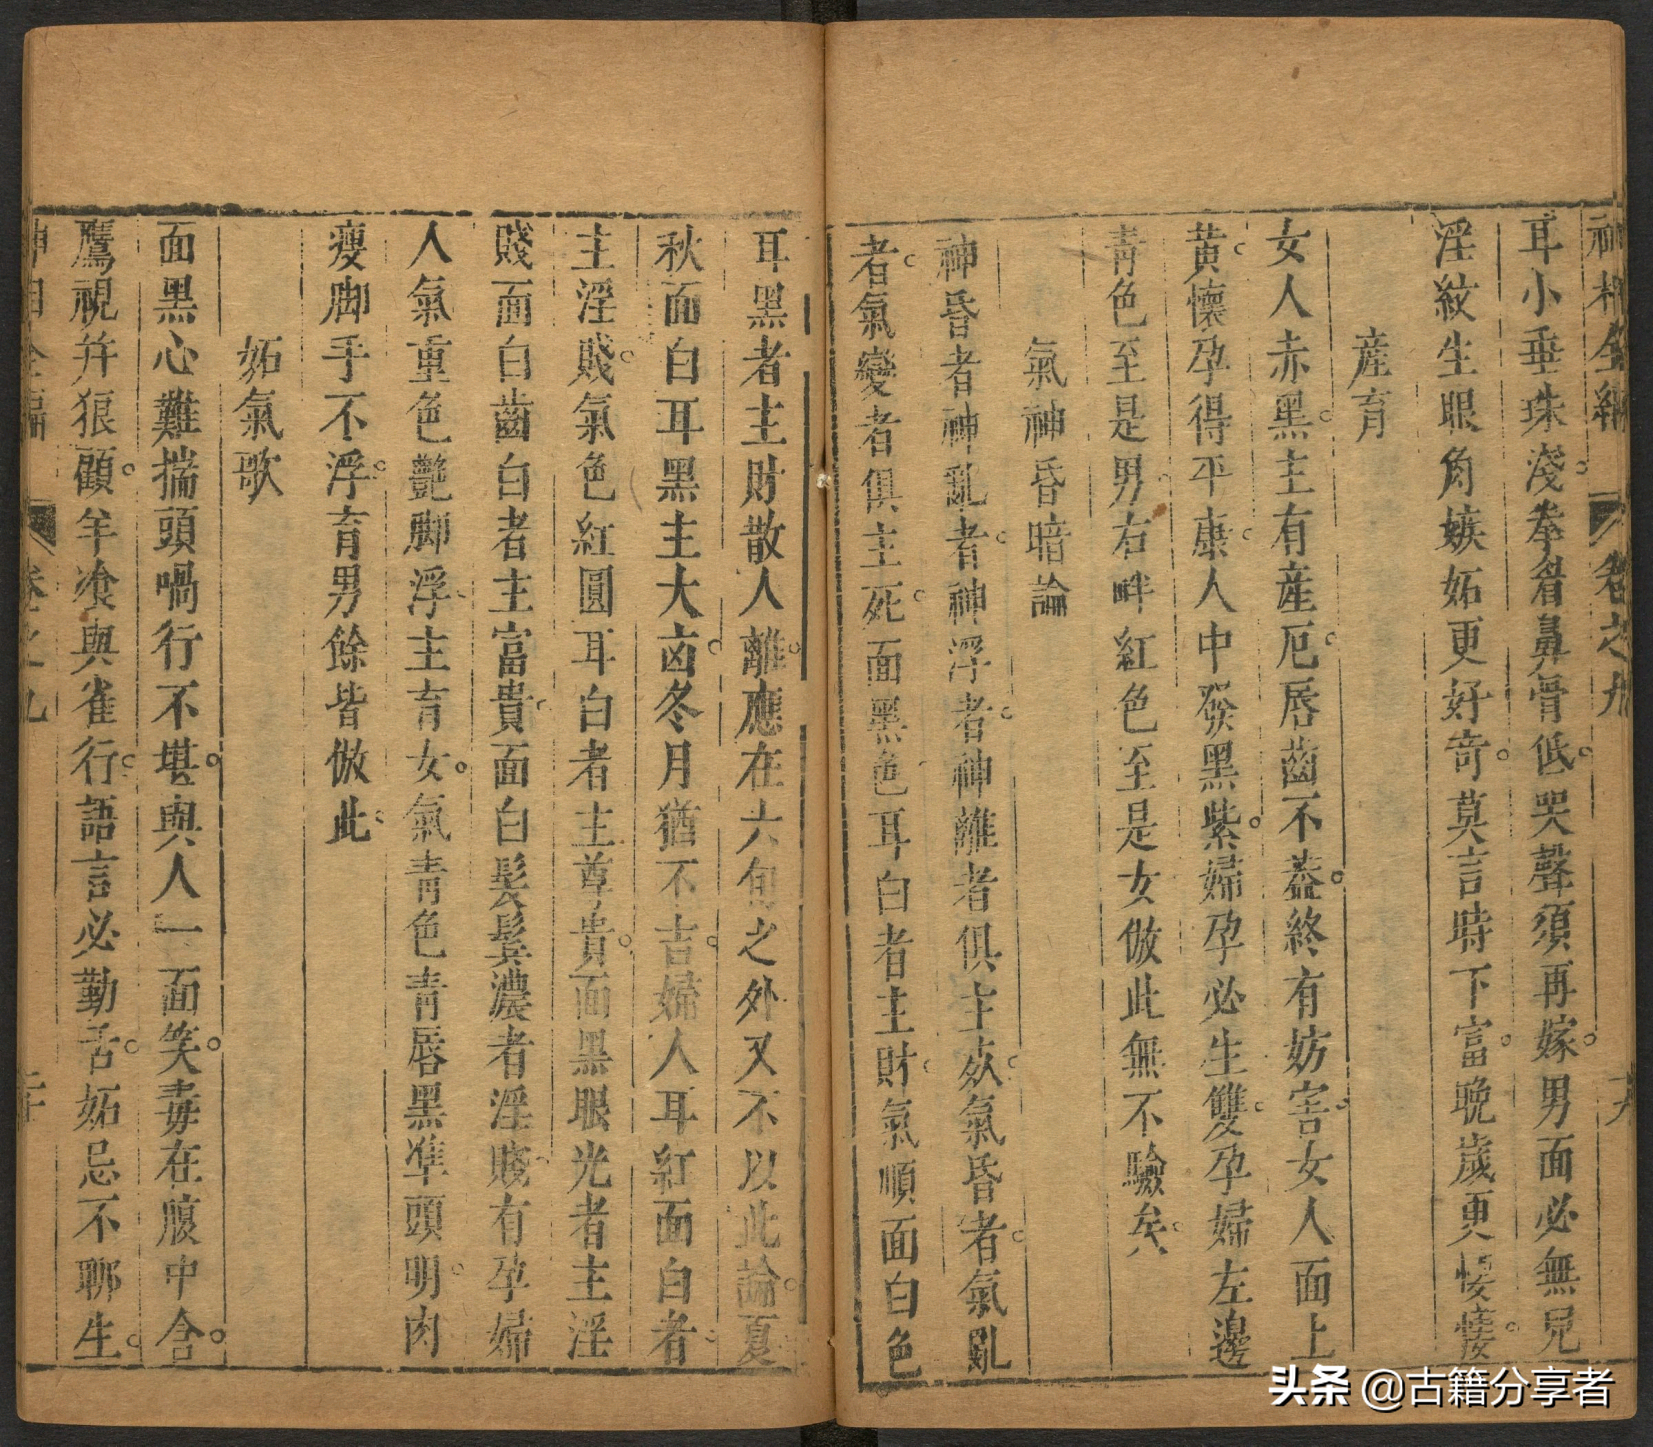 神相全編 卷之九 十九
耳小垂珠淺拳看鼻骨低哭聲須再嫁男面必無兒
淫紋生眼角嫉妬更好奇莫言時下富晚歲更悽悽
産育
女人赤黑主有産厄唇齒不蓋終有妨害女人面上
黃懷孕得平康人中發黑紫婦孕必生雙孕婦左邊
靑色至是男右畔紅色至是女倣此無不驗矣
氣神昏暗論
神昏者神亂者神浮者神離者俱主災氣昏者氣亂
者氣變者俱主死面黑色耳白者主財氣順面白色
耳黑者主財散人離應在六旬之外又不以此論夏
秋面白耳黑主大凶冬月猶不吉婦人耳紅面白者
主淫賤氣色紅圓耳白者主尊貴面黑眼光者主淫
賤面白齒白者主富貴面白髮鬢濃者淫賤有孕婦
人氣重色艷脚浮主育女氣靑色靑唇黑準頭明肉
瘦脚手不浮育男餘皆倣此
妬氣歌
面黑心難揣頭喎行不堪與人一面笑毒在腹中含
鷹視并狼顧羊飡與雀行語言必勤舌妬忌不聊生
神相全編 卷之九 二十
头条 @古籍分享者